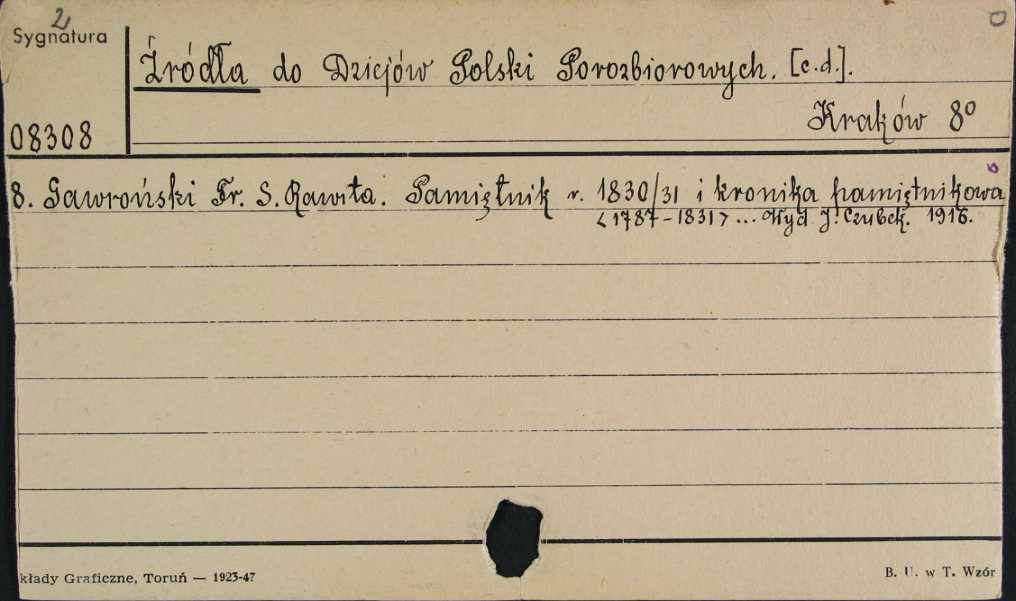 2
Sygnatura
Źródła do Dziejów Polski Porozbiorowych. [c.d.].
Kraków 8º
08308
8. Gawroński Fr. S. Rawita. Pamiętnik r. 1830/31 i kronika pamiętnikowa
<1787-1831> ... Wyd J. Czubek. 1916.
kłady Graficzne, Toruń — 1923-47
B. U. w T. Wzór